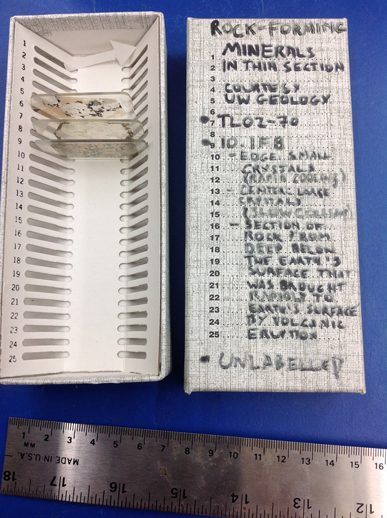 ROCK-FORMING
MINERALS
IN THIN SECTION
COURTESY
UW GEOLOGY
• TL02-70
• 10.IF8
- EDGE: SMALL
CRYSTALS
(RAPID COOLING)
- CENTER: LARGE
CRYSTALS
(SLOW COOLING)
- SECTION OF
ROCK FROM
DEEP BELOW
THE EARTH'S
SURFACE THAT
WAS BROUGHT
RAPIDLY TO
EARTH'S SURFACE
BY VOLCANIC
ERUPTION
• UNLABELLED
1
2
3
4
5
6
7
8
9
10
11
12
13
14
15
16
17
18
19
20
21
22
23
24
25
1
2
3
4
5
6
7
8
9
10
11
12
13
14
15
16
17
18
19
20
21
22
23
24
25
1 2 3 4 5 6 7 8 9 10 11 12 13 14 15 16
MM
MADE IN U.S.A.
18 17 16 15 14 13 12